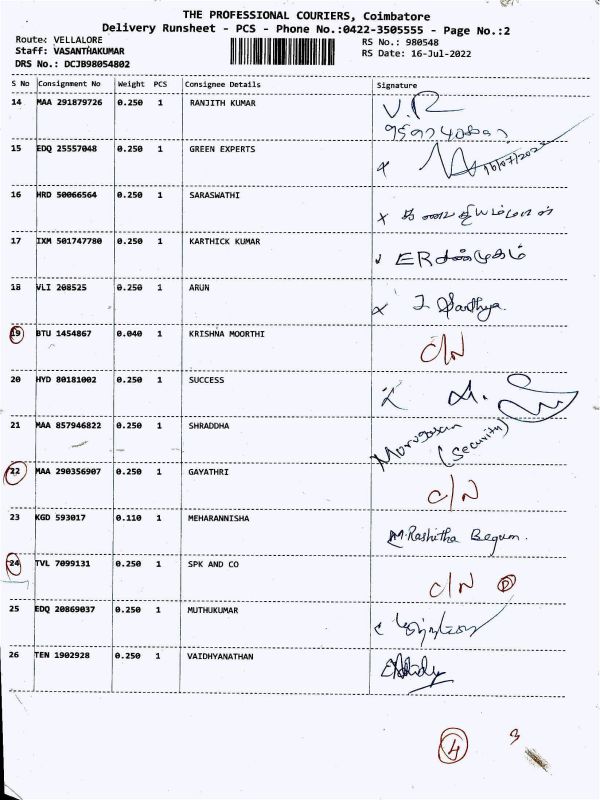 THE PROFESSIONAL COURIERS, Coimbatore
Delivery Runsheet - PCS - Phone No.:0422-3505555 - Page No.:2
Route: VELLALORE
RS No.: 980548
Staff: VASANTHAKUMAR
RS Date: 16-Jul-2022
DRS No.: DCJB98054802
S No Consignment No Weight PCS Consignee Details Signature
14 MAA 291879726 0.250 1 RANJITH KUMAR V.R
15 EDQ 25557048 0.250 1 GREEN EXPERTS 16/07/2022
16 HRD 50066564 0.250 1 SARASWATHI
17 IXM 501747780 0.250 1 KARTHICK KUMAR ER சண்முகம்
18 VLI 208525 0.250 1 ARUN
19 BTU 1454867 0.040 1 KRISHNA MOORTHI C/N
20 HYD 80181002 0.250 1 SUCCESS
21 MAA 857946822 0.250 1 SHRADDHA Murugesan (Security)
22 MAA 290356907 0.250 1 GAYATHRI C/N
23 KGD 593017 0.110 1 MEHARANNISHA M.Rashitha Begum.
24 TVL 7099131 0.250 1 SPK AND CO C/N D
25 EDQ 20869037 0.250 1 MUTHUKUMAR
26 TEN 1902928 0.250 1 VAIDHYANATHAN
4 3